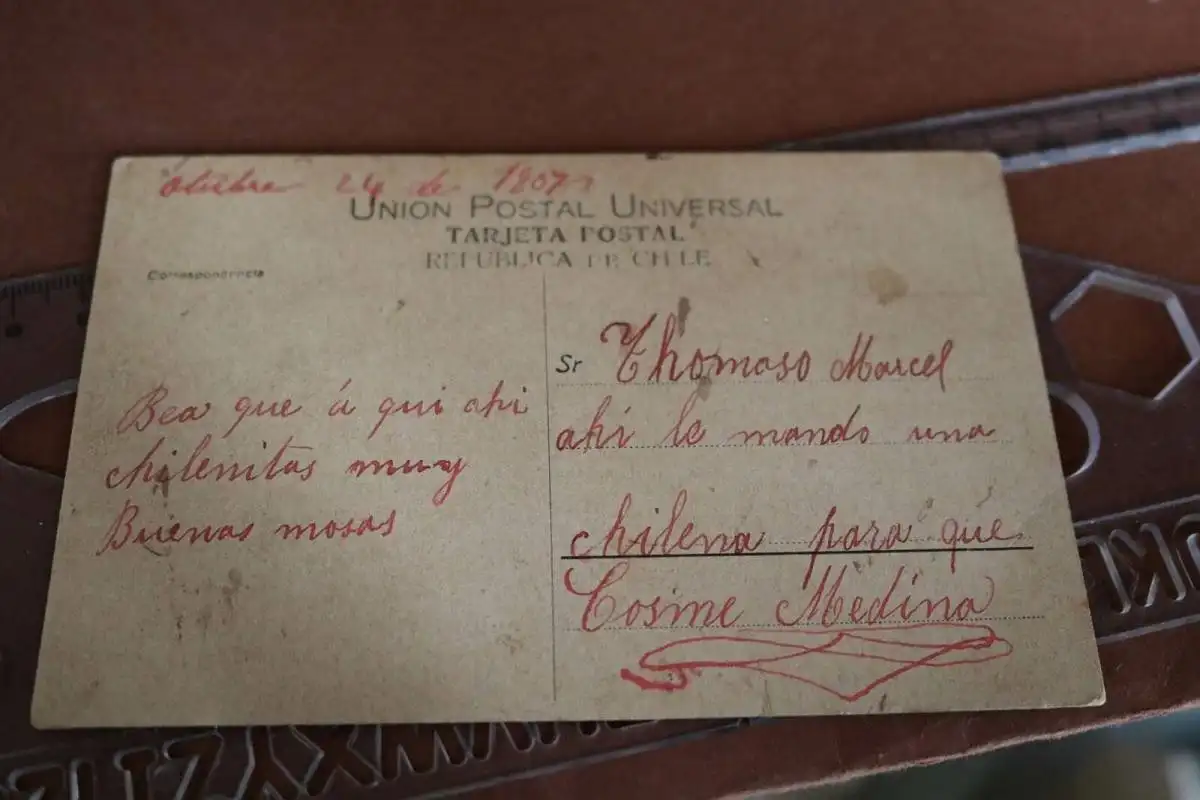 Octubre 24 de 1907
UNION POSTAL UNIVERSAL
TARJETA POSTAL
REPUBLICA DE CHILE
Correspondencia
Bea que á qui ahi
chilenitas muy
Buenas mosas
Sr Thomaso Marcel
ahi le mando una
chilena para que
Cosme Medina
UKL
WXYZ